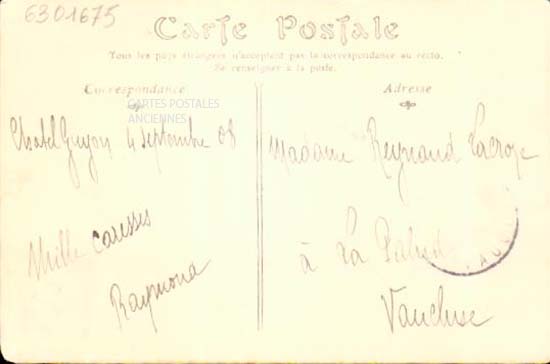 6301675
Carte Postale
Tous les pays étrangers n'acceptent pas la correspondance au recto.
Se renseigner à la poste.
Correspondance
CARTES POSTALES
ANCIENNES
Chatel Guyon 4 septembre 08
Mille caresses
Raymond
Adresse
Madame Reynaud Lacroze
à La Palud
Vaucluse